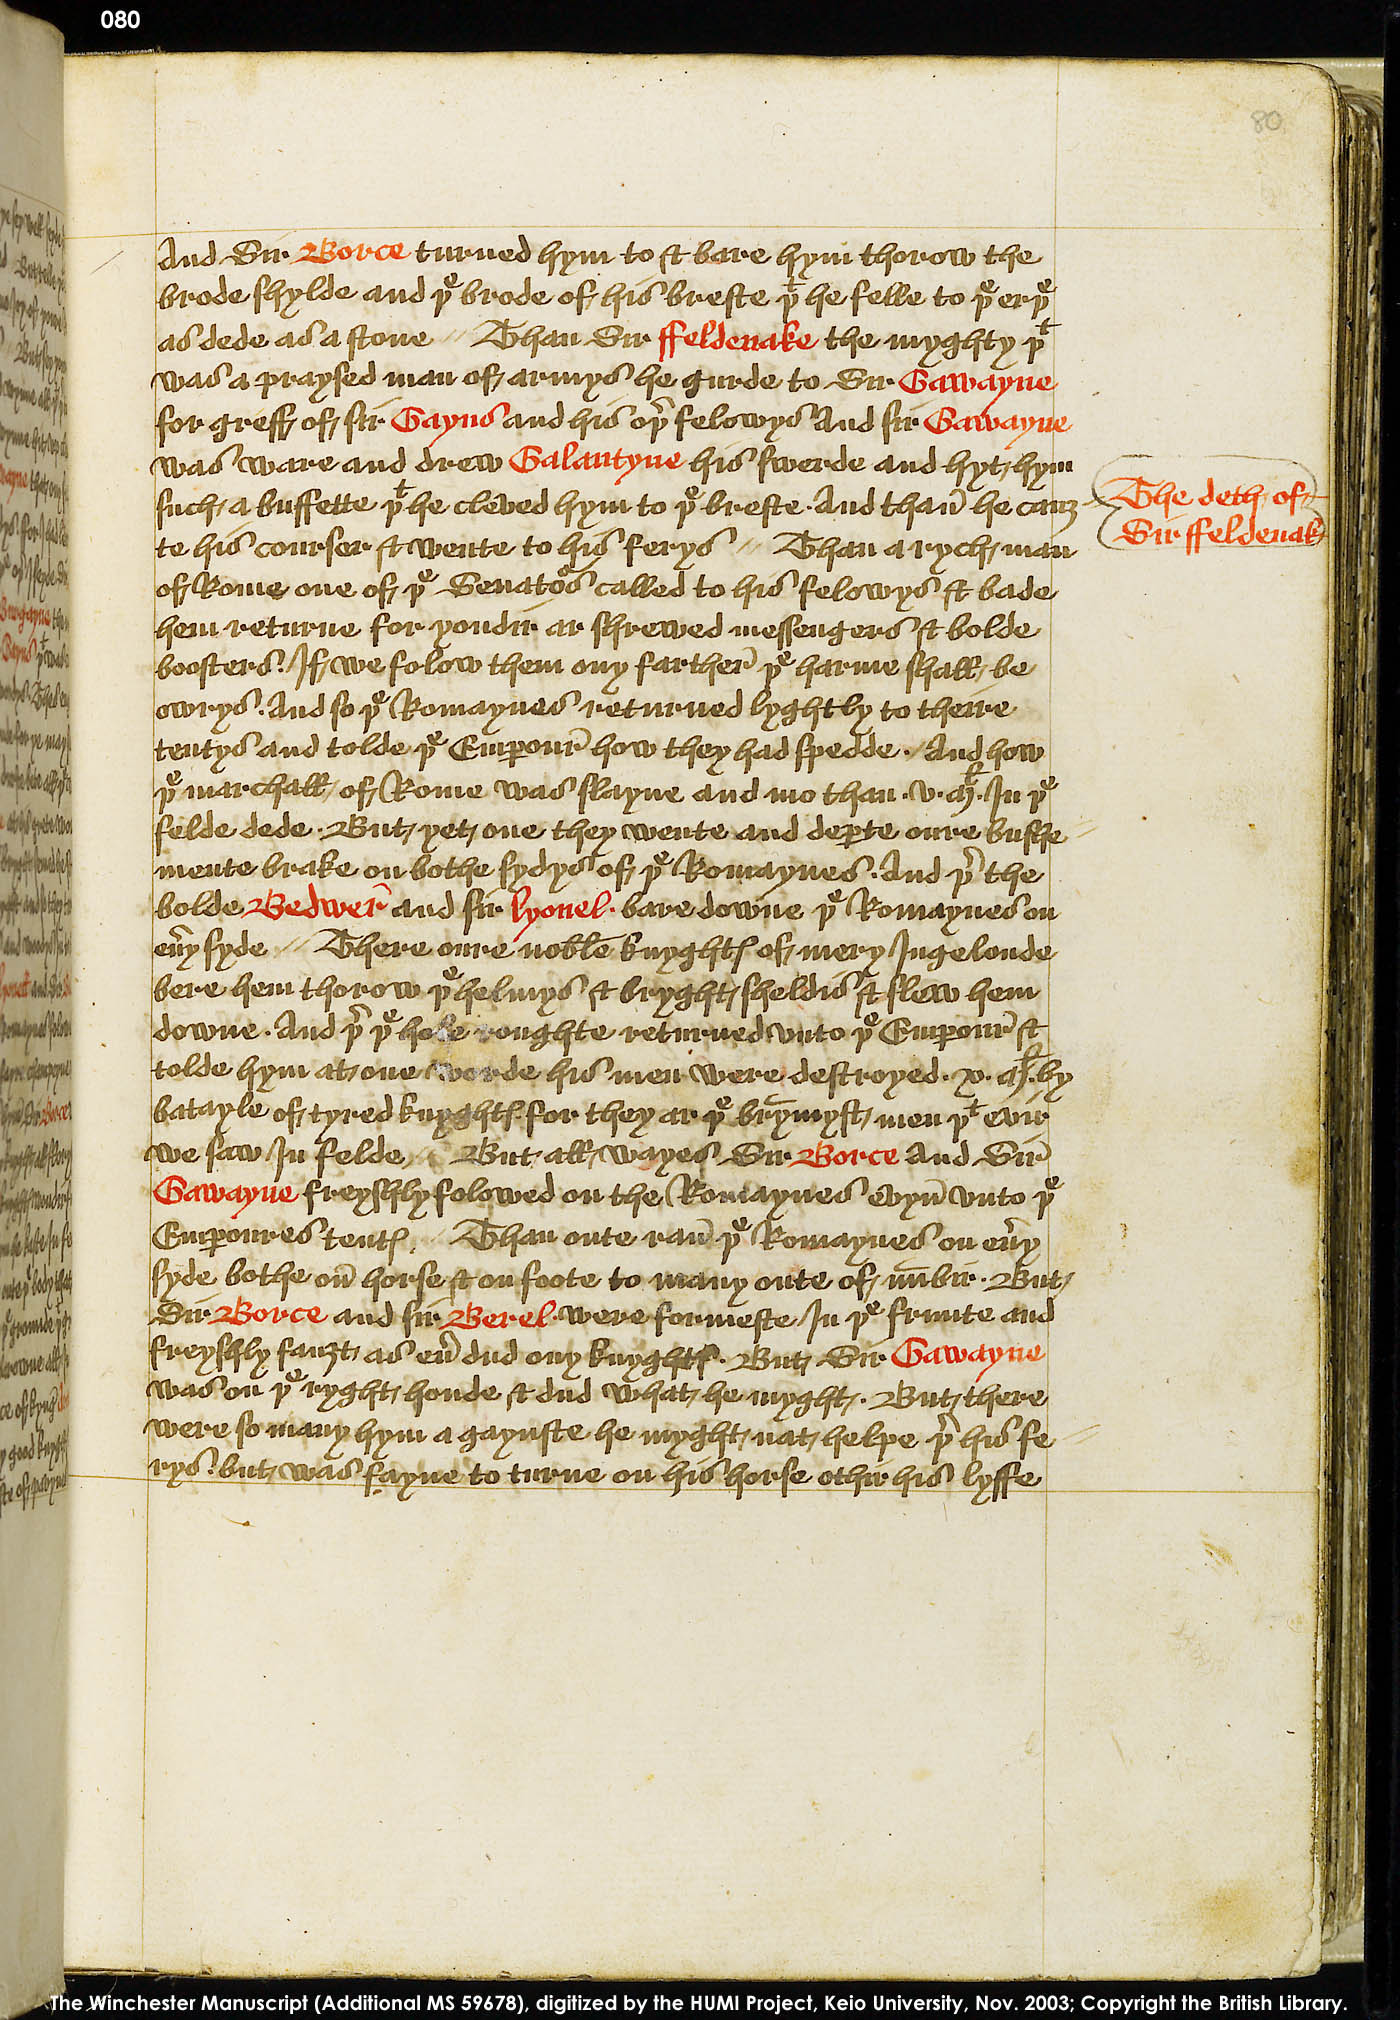 080
80
And Sir Borce turned hym to & bare hym thorow the
brode shylde and þe brode of his breste þt he felle to þe erþe
as dede as a stone // Than Sir ffeldenake the myghty þt
was a praysed man of armys he gurde to Sir Gawayne
for greff of sir Gayus and his oþr felowys And sir Gawayne
was ware and drew Galantyne his swerde and hyt hym
such a buffette þt he cleved hym to þe breste. And than he cauȝ
te his courser & wente to his ferys // Than a rych man
of Rome one of þe Senatoꝰs called to his felowys & bade
hem returne for yondir ar shrewed messengers & bolde
boosters. If we folow them ony farther þe harme shall be
owrys. And so þe Romaynes returned lyghtly to theire
tentys and tolde þe Emperour how they had spedde. And how
þe marchall of Rome was slayne and mo than .v. Ml. In þe
felde dede. But yet one they wente and deꝑte oure bushe
mente brake on bothe sydys of þe Romaynes. And þr the
bolde Bedwer and sir lyonel. bare downe þe Romaynes on
eu͛y syde // There oure noble knyghtꝭ of mery Ingelonde
bere hem thorow þe helmys & bryght sheldis & slew hem
downe. And þr þe hole roughte returned vnto þe Emperour &
tolde hym at one worde his men were destroyed .x. Ml. by
batayle of tyred knyghtꝭ. for they ar þe brymyst men þt evir
we saw In felde // But all wayes Sir Borce And Sir
Gawayne freyshly folowed on the Romaynes evyn vnto þe
Emperoures tentꝭ // Than oute ran þe Romaynes on eu͛y
syde bothe on horse & on foote to many oute of nūbir. But
Sir Borce and sir Berel. were formeste In þe frunte and
freyshly fauȝt as eu͛ dud ony knyghtꝭ. But Sir Gawayne
was on þe ryght honde & dud what he myght. But there
were so many hym a gaynste he myght nat helpe þr his fe
rys. but was fayne to turne on his horse othir his lyffe
The deth of
Sir ffeldenak
The Winchester Manuscript (Additional MS 59678), digitized by the HUMI Project, Keio University, Nov. 2003; Copyright the British Library.